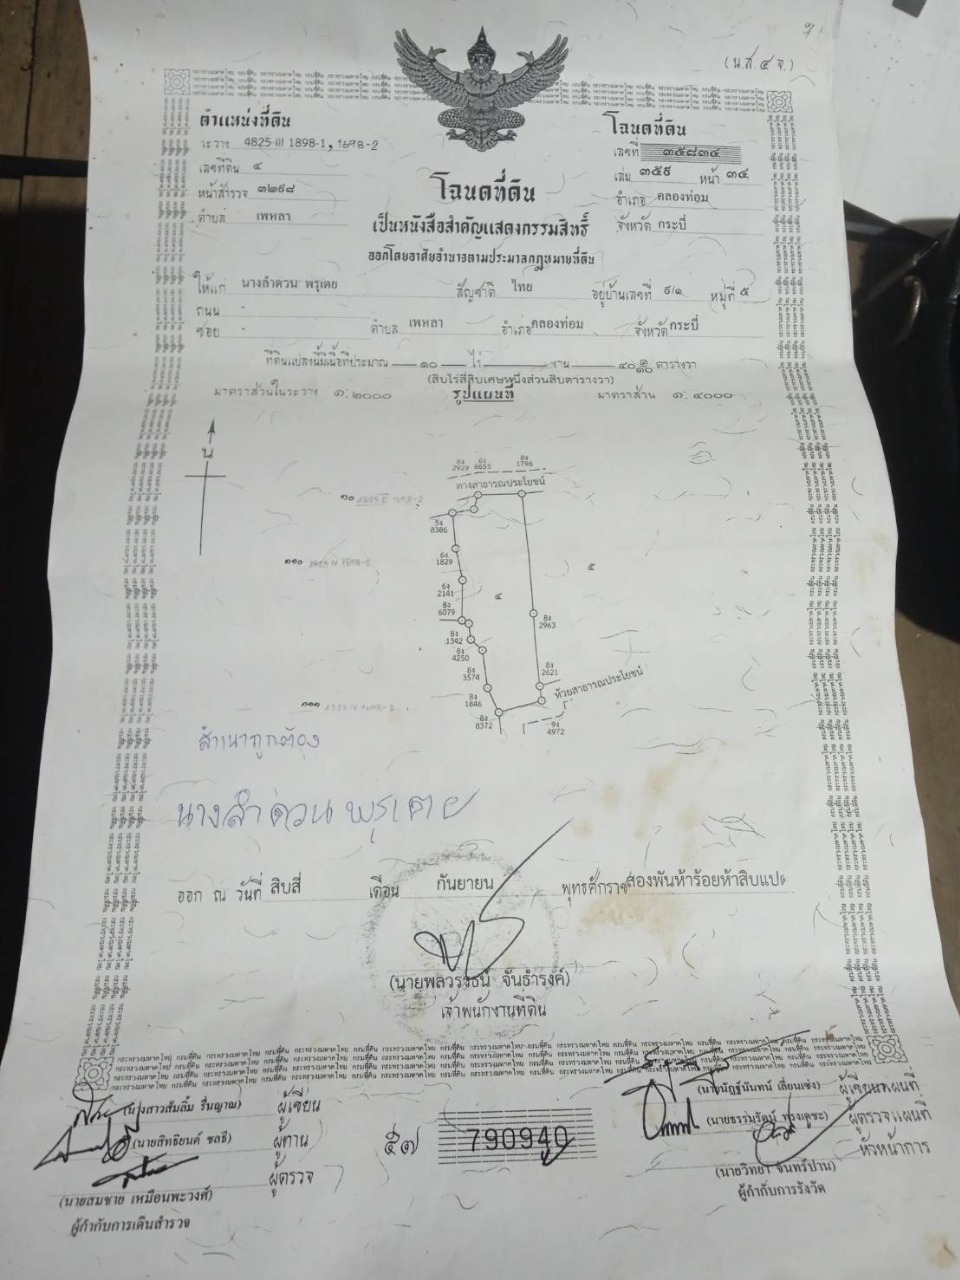 (น.ส. ๔ จ.)
ตำแหน่งที่ดิน
ระวาง 4825 III 1898-1, 1698-2
เลขที่ดิน ๔
หน้าสำรวจ ๓๒๙๘
ตำบล เพหลา
โฉนดที่ดิน
เลขที่ ๓๕๘๓๔
เล่ม ๓๕๙ หน้า ๓๔
อำเภอ คลองท่อม
จังหวัด กระบี่
โฉนดที่ดิน
เป็นหนังสือสำคัญแสดงกรรมสิทธิ์
ออกโดยอาศัยอำนาจตามประมวลกฎหมายที่ดิน
ให้แก่ นางลำดวน พรุเตย สัญชาติ ไทย อยู่บ้านเลขที่ ๙/๑ หมู่ที่ ๕
ถนน -
ซอย - ตำบล เพหลา อำเภอ คลองท่อม จังหวัด กระบี่
ที่ดินแปลงนี้มีเนื้อที่ประมาณ ๑๐ ไร่ งาน ๔๐ ๑/๑๐ ตารางวา
(สิบไร่สี่สิบเศษหนึ่งส่วนสิบตารางวา)
มาตราส่วนในระวาง ๑:๒๐๐๐ รูปแผนที่ มาตราส่วน ๑:๔๐๐๐
น
8ง 2929
6ง 8655
8ง 1796
ทางสาธารณประโยชน์
5ง 8386
6ง 1829
๕
6ง 2141
๔
8ง 6079
8ง 2963
8ง 1342
8ง 4250
8ง 3574
8ง 2621
ห้วยสาธารณประโยชน์
8ง 1846
8ง 8372
9ง 4972
สำเนาถูกต้อง
นางลำดวน พรุเตย
ออก ณ วันที่ สิบสี่ เดือน กันยายน พุทธศักราช สองพันห้าร้อยห้าสิบแปด
(นายพลวรรธน์ จันธำรงค์)
เจ้าพนักงานที่ดิน
(นางสาวส้มลิ้ม รื่นญาณ) ผู้เขียน
(นายสิทธิยนต์ ชลธี) ผู้ทาน
ผู้ตรวจ
(นายสมชาย เหมือนพะวงศ์)
ผู้กำกับการเดินสำรวจ
๕๗ 790940
(นายณัฏฐ์นันทน์ เลี่ยนเซ่ง) ผู้เขียนแผนที่
ผู้ตรวจแผนที่
หัวหน้าการ
(นายวิทยา จันทร์ปาน)
ผู้กำกับการรังวัด